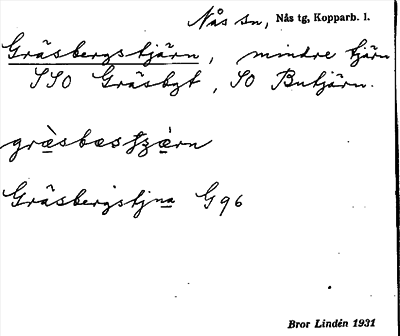 Nås sn, Nås tg, Kopparb. l.
Gräsbergstjärn, mindre tjärn
SSO Gräsbgt, SO Butjärn.
græ̀sbæsʃæ̀rn
Gräsbergstjna G 96
Bror Lindén 1931